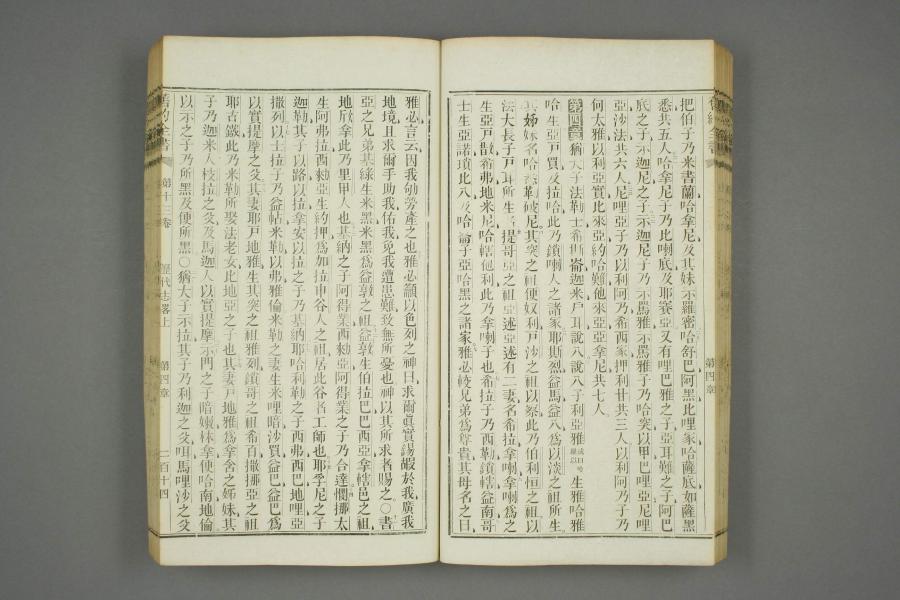 把伯子乃米書蘭哈拿尼及其妹示羅密哈舒巴阿黑比哩家哈薩底如薩黑
悉共五人哈拿尼子乃比喇底及耶賽亞又有哩巴雅之子亞
底之子示迦尼之子示迦尼子乃示馬雅示馬雅子乃哈突以甲巴哩亞尼哩
亞沙法共六人尼哩亞子乃以利阿乃希西家押利甘共三人以利阿乃子乃
何太雅以利亞實比來亞約哈難他來亞亞拿尼共七人
第四章猶大子法勒士希斯崙迦米戶耳說八說八子利亞雅生雅哈雅
哈生亞戶買及拉哈此乃鎖喇人之諸家耶斯烈益馬益八爲以淡之祖所生
其姊妹名哈悉勒彼尼其突之祖便奴利戶沙之祖以察此乃伯利恒之祖以
法大長子戶耳所生提哥亞之祖亞述亞述有二妻名希拉拿喇拿喇爲之
生亞戶散希弗地米尼哈轄他利此乃拿喇子也希拉子乃西勒鎖轄益南哥
士生亞諾瑣比八及哈崙子亞哈黑之諸家雅必岐兄弟爲尊貴其母名之曰
雅必言云因我劬勞產之也雅必籲以色列之神曰求爾真實錫嘏於我廣我
地境且求爾手助我佑我免我遭患難致無所憂也神以其所求者賜之○書
亞之兄弟基綠生米黑米黑爲益敦之祖益敦生伯拉巴巴西亞拿轄邑之祖
地欣拿此乃里甲人也基納之子阿得業西勑亞阿得業之子乃合達憪挪太
生阿弗拉西勑亞生約押爲加拉申谷人之祖居此谷者工師也耶孚尼之子
迦勒其子以路以拉拿安以拉之子乃基納耶哈利勒之子西弗西巴地哩亞
撒列以士拉子乃益帖米勒以弗雅倫米勒之妻生米哩暗沙買益巴益巴爲
以實提摩之父其妻耶戶地雅生其突之祖雅列鎖哥之祖希百撒挪亞之祖
耶古鐵此乃米勒所娶法老女比地亞之子也其妻戶地雅爲拿含之姊妹其
子乃迦米人枝拉之父及馬迦人以實提摩示門之子暗嫩林拿便哈南地倫
以示之子乃所黑及便所黑○猶大子示拉其子乃利迦之父咡馬哩沙之父
舊約全書 第十三卷 歷代志畧上 第四章 二百十四
舊約全書 第四章